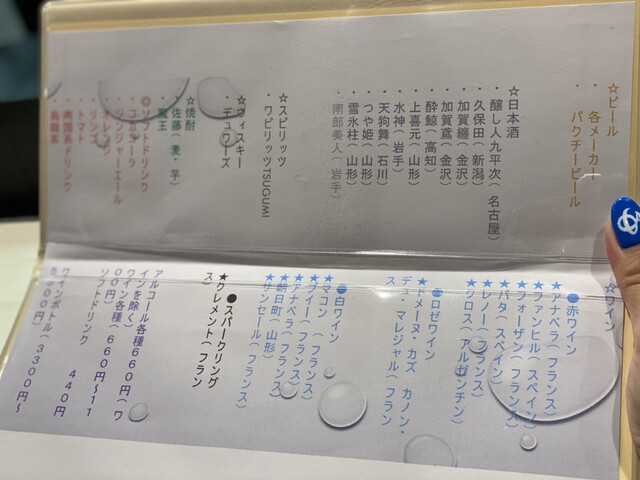 ☆ビール
・各メーカー
・パクチービール
☆日本酒
・醸し人九平次（名古屋）
・久保田（新潟）
・加賀纏（金沢）
・加賀鳶（金沢）
・酔鯨（高知）
・上喜元（山形）
・水神（岩手）
・天狗舞（石川）
・つや姫（山形）
・雪氷柱（山形）
・南部美人（岩手）
☆スピリッツ
・ワピリッツTSUGUMI
☆ウィスキー
・デュワーズ
☆焼酎
・佐藤（麦・芋）
・魔王
◎ソフトドリンク
・コカコーラ
・ジンジャーエール
・オレンジ
・リンゴ
・トマト
・南国系ドリンク
・烏龍茶
☆ワイン
●赤ワイン
★アナベラ（フランス）
★ファンヒル（スペイン）
★フォーザン（フランス）
★パタ（スペイン）
★レノー（フランス）
★クロス（アルゼンチン）
●ロゼワイン
★ドメーヌ・カズ カノン・
デュ・マレシャル（フラン
●白ワイン
★マコン （フランス）
★ブイー（フランス）
★アナベラ（フランス）
★朝日町（山形）
★サンセール（フランス）
●スパークリング
★クレメント（フラン
ス）
アルコール各種660円（ワ
インを除く）
ワイン各種（660円〜11
00円）
ソフトドリンク 440円
ワインボトル（3300円〜
5500円）